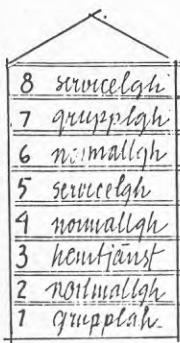 8 servicelgh
7 grupplgh
6 normallgh
5 servicelgh
4 normallgh
3 hemtjänst
2 normallgh
1 grupplgh